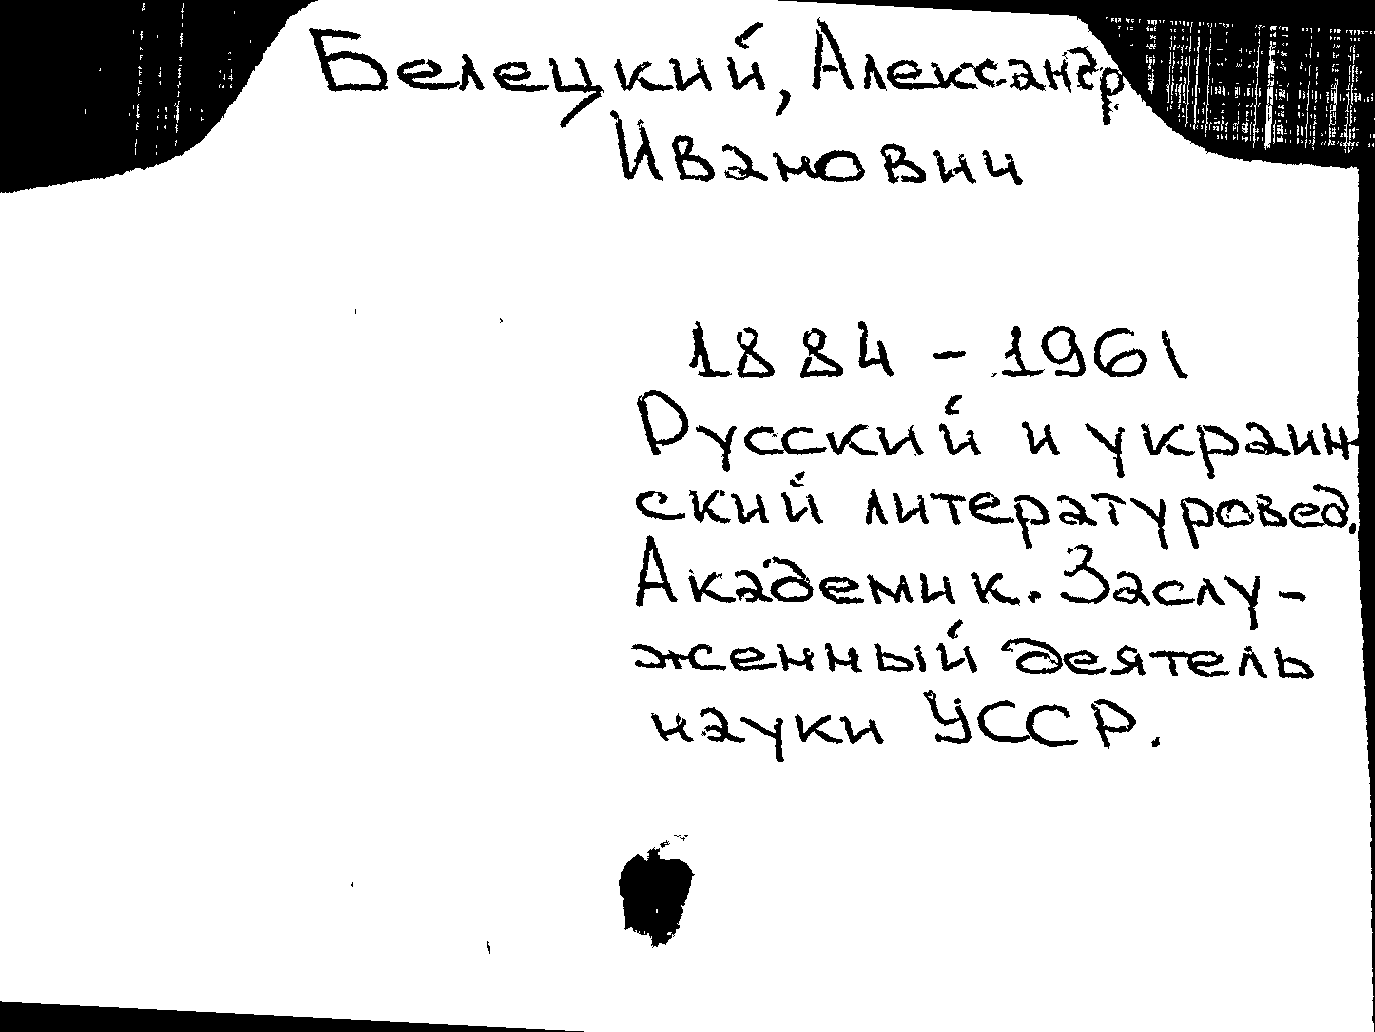 Белецкий, Александр
Иванович
1884 - 1961
Русский и украин-
ский литературовед.
Академик. Заслу-
женный деятель
науки УССР.